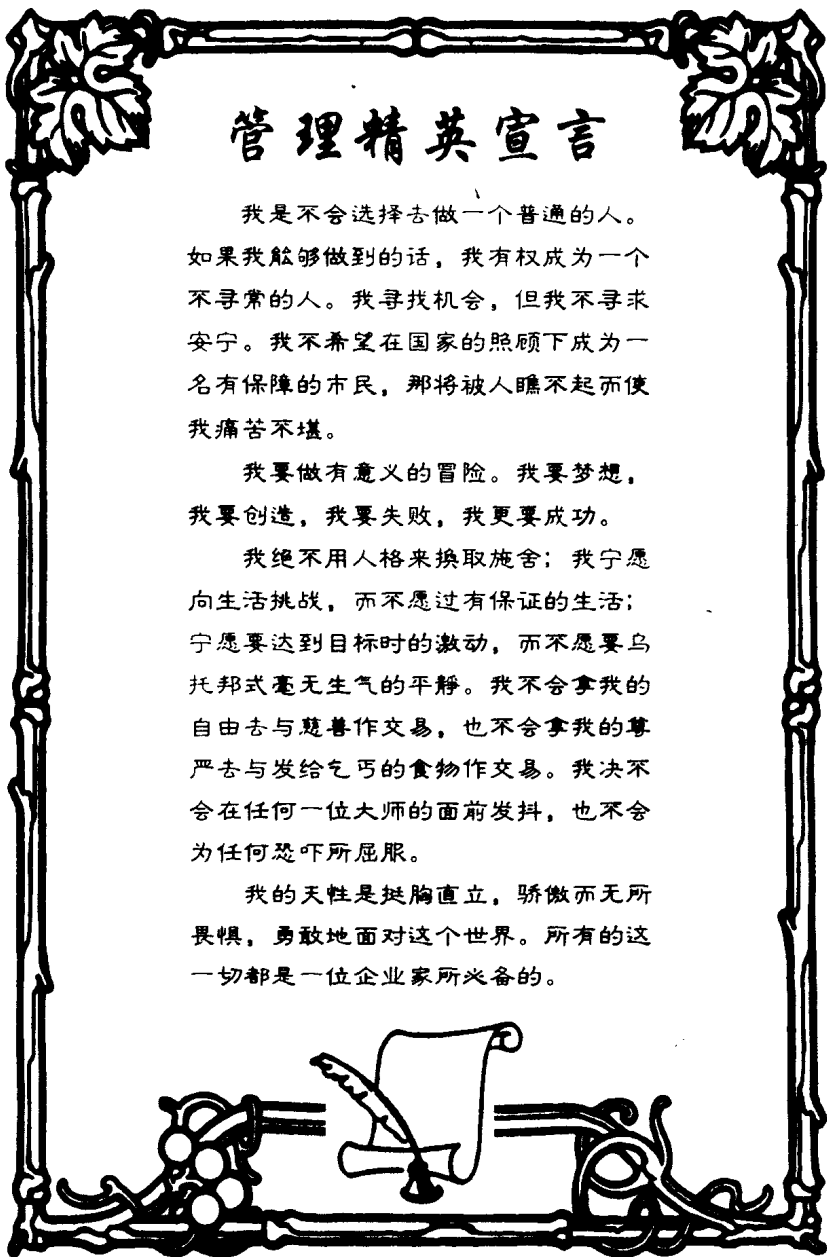 管理精英宣言
我是不会选择去做一个普通的人。
如果我能够做到的话，我有权成为一个
不寻常的人。我寻找机会，但我不寻求
安宁。我不希望在国家的照顾下成为一
名有保障的市民，那将被人瞧不起而使
我痛苦不堪。
我要做有意义的冒险。我要梦想，
我要创造，我要失败，我更要成功。
我绝不用人格来换取施舍；我宁愿
向生活挑战，而不愿过有保证的生活；
宁愿要达到目标时的激动，而不愿要乌
托邦式毫无生气的平静。我不会拿我的
自由去与慈善作交易，也不会拿我的尊
严去与发给乞丐的食物作交易。我决不
会在任何一位大师的面前发抖，也不会
为任何恐吓所屈服。
我的天性是挺胸直立，骄傲而无所
畏惧，勇敢地面对这个世界。所有的这
一切都是一位企业家所必备的。